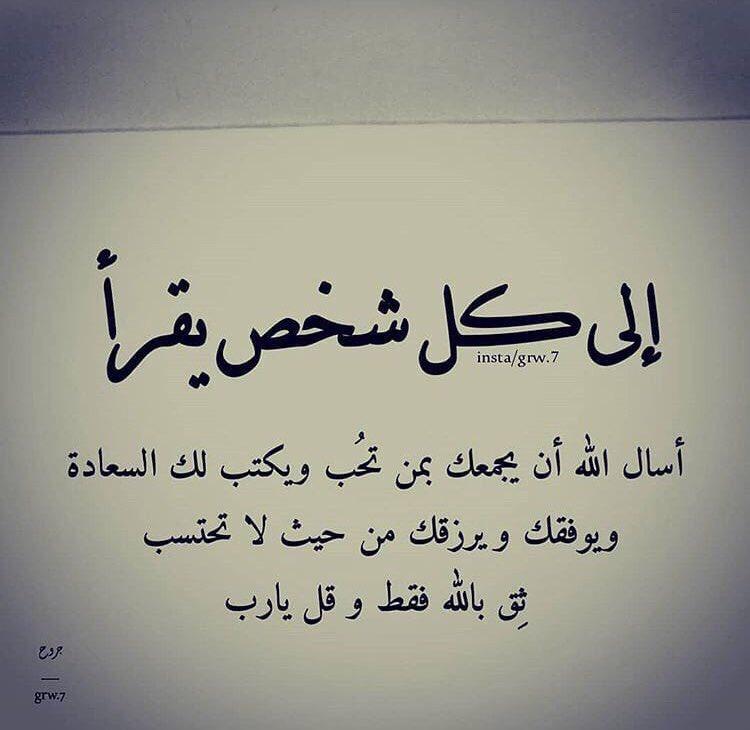 إلى كل شخص يقرأ
insta/grw.7
أسال الله أن يجمعك بمن تحُب ويكتب لك السعادة
ويوفقك ويرزقك من حيث لا تحتسب
ثِق بالله فقط و قل يارب
جروح
grw.7